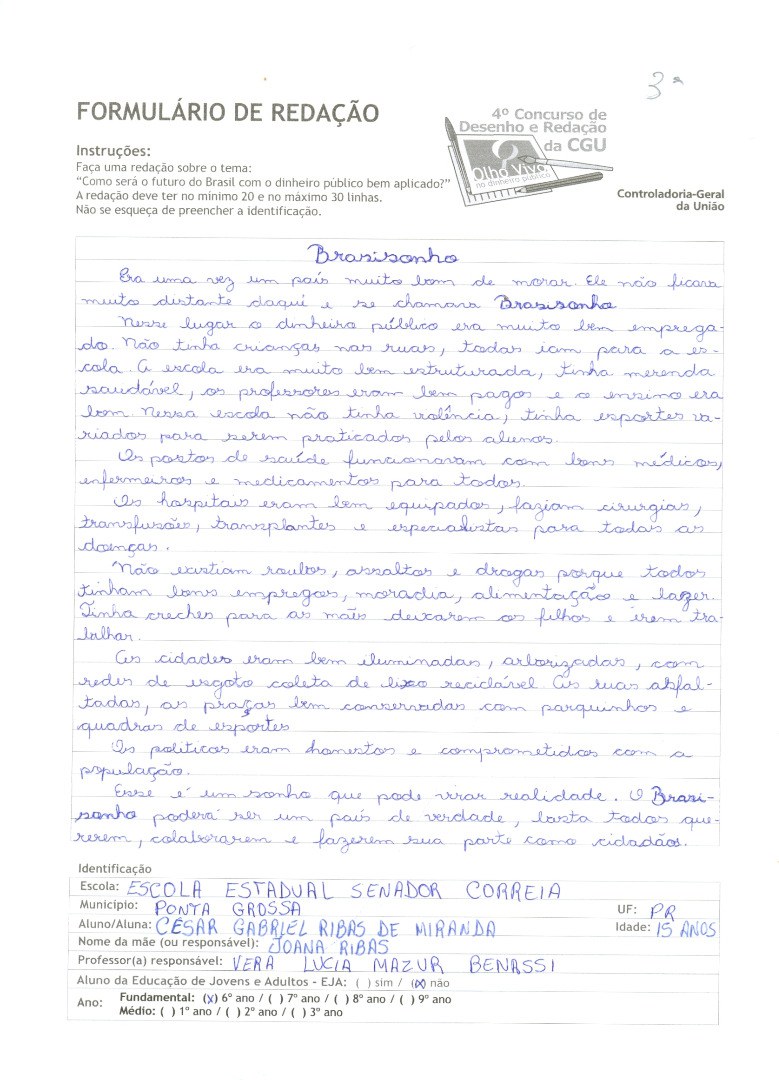 3ª
FORMULÁRIO DE REDAÇÃO
4º Concurso de
Desenho e Redação
da CGU
Olho Vivo
no dinheiro público
Controladoria-Geral
da União
Instruções:
Faça uma redação sobre o tema:
“Como será o futuro do Brasil com o dinheiro público bem aplicado?”
A redação deve ter no mínimo 20 e no máximo 30 linhas.
Não se esqueça de preencher a identificação.
Brasisonho
Era uma vez um país muito bom de morar. Ele não ficara
muito distante daqui e se chamara Brasisonho
Nesse lugar o dinheiro público era muito bem emprega-
do. Não tinha crianças nas ruas, todas iam para a es-
cola. A escola era muito bem estruturada, tinha merenda
saudável, os professores eram bem pagos e o ensino era
bom. Nessa escola não tinha violência, tinha esportes va-
riados para serem praticados pelos alunos.
Os postos de saúde funcionavam com bons médicos,
enfermeiros e medicamentos para todos.
Os hospitais eram bem equipados, faziam cirurgias,
transfusões, transplantes e especialistas para todas as
doenças.
Não existiam roubos, assaltos e drogas porque todos
tinham bons empregos, moradia, alimentação e lazer.
Tinha creches para as mães deixarem os filhos e irem tra-
balhar.
As cidades eram bem iluminadas, arborizadas, com
redes de esgoto coleta de lixo reciclável As ruas asfal-
tadas, as praças bem conservadas com parquinhos e
quadras de esportes
Os políticos eram honestos e comprometidos com a
população.
Esse é um sonho que pode virar realidade. O Brasi-
sonho poderá ser um país de verdade, basta todos que-
rerem, colaborarem e fazerem sua parte como cidadãos.
Identificação
Escola: ESCOLA ESTADUAL SENADOR CORREIA
Município: PONTA GROSSA UF: PR
Aluno/Aluna: CÉSAR GABRIEL RIBAS DE MIRANDA Idade: 15 ANOS
Nome da mãe (ou responsável): JOANA RIBAS
Professor(a) responsável: VERA LUCIA MAZUR BENASSI
Aluno da Educação de Jovens e Adultos - EJA: ( ) sim / (x) não
Ano: Fundamental: (x) 6º ano / ( ) 7º ano / ( ) 8º ano / ( ) 9º ano
Médio: ( ) 1º ano / ( ) 2º ano / ( ) 3º ano